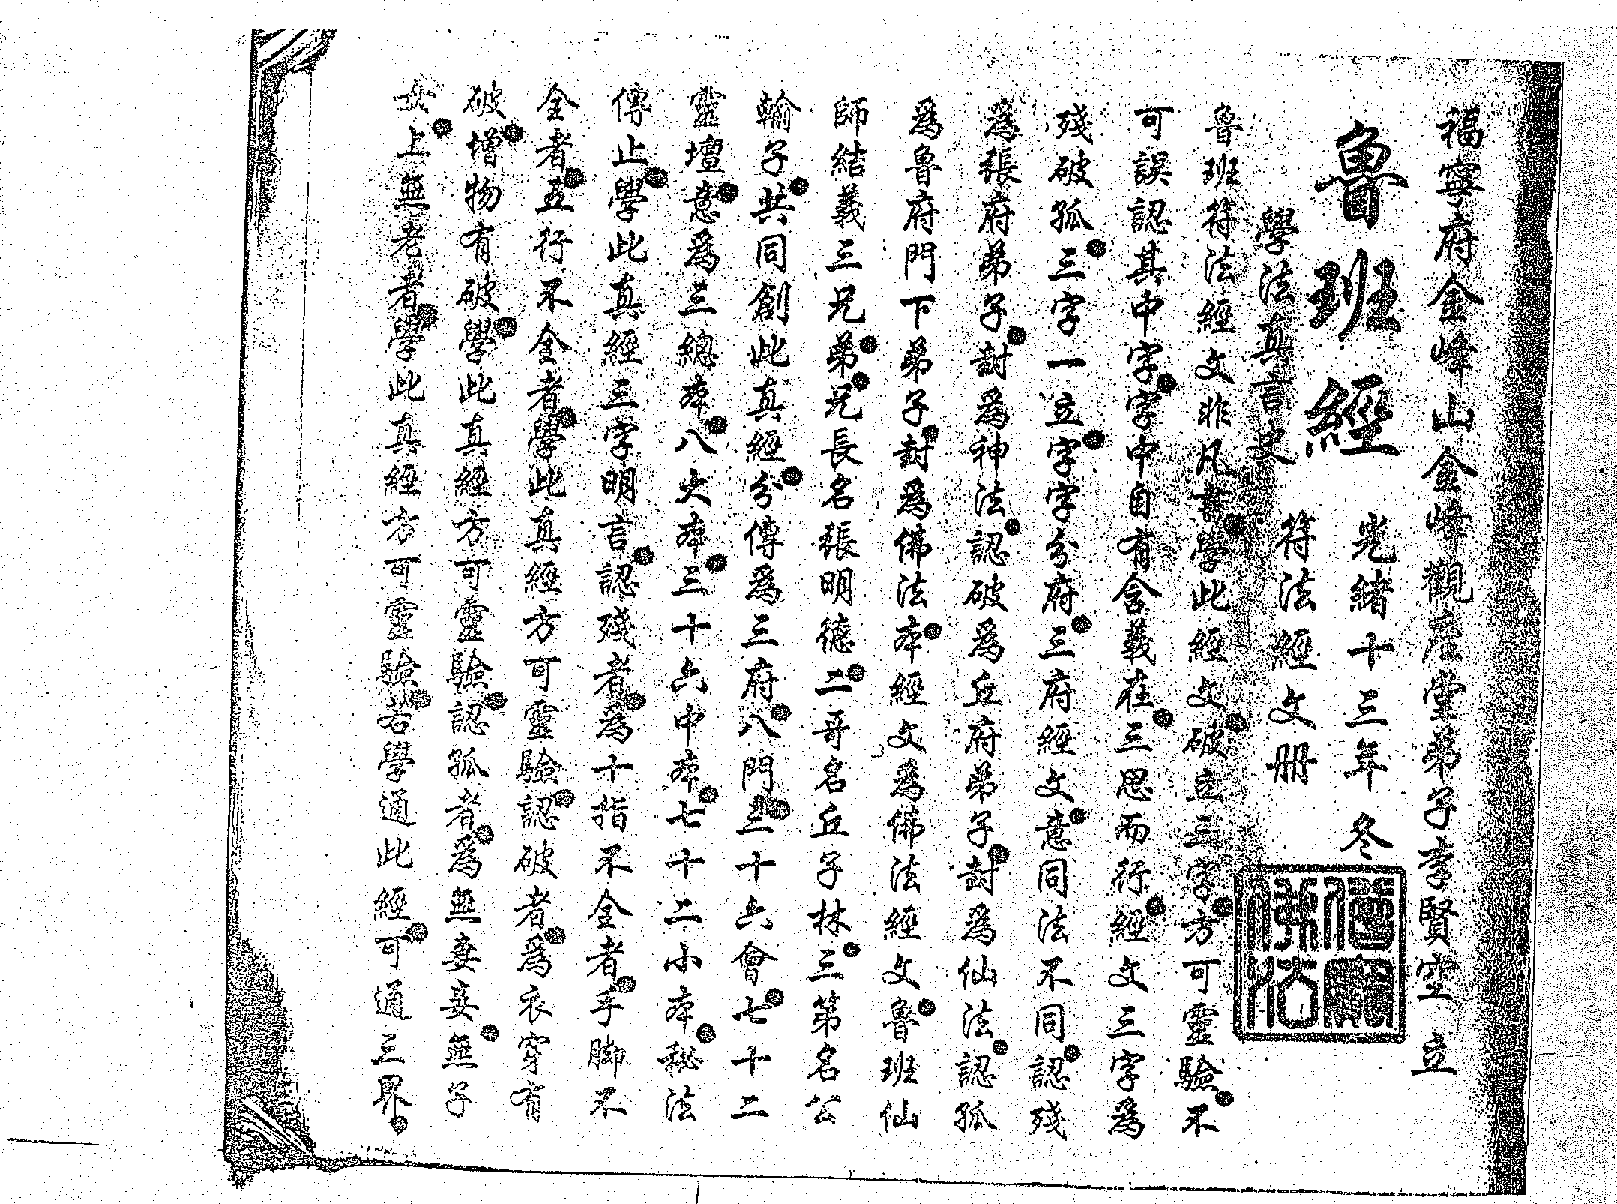 福寧府金峰山金峰觀 堂弟子李賢空立
魯班經 光緒十三年冬
符法經文册
學法真言
魯班符法經文非凡書學此經文破立三字方可靈驗不
可誤認其中字字中自有含義在三思而行經文三字為
殘破孤三字一立字字分府三府經文意同法不同認殘
為張府弟子封為神法認破為丘府弟子封為仙法認孤
為魯府門下弟子封為佛法本經文為佛法經文魯班仙
師結義三兄弟兄長名張明德二哥名丘子林三第名公
輸子共同創此真經分傳為三府八門三十六會七十二
靈壇意為三總本八大本三十六中本七十二小本秘法
傳止學此真經三字明言認殘者為十指不全者手脚不
全者五行不全者學此真經方可靈驗認破者為衣穿有
破增物有破學此真經方可靈驗認孤者為無妻妾無子
女上無老者學此真經方可靈驗若學通此經可通三界
佛法